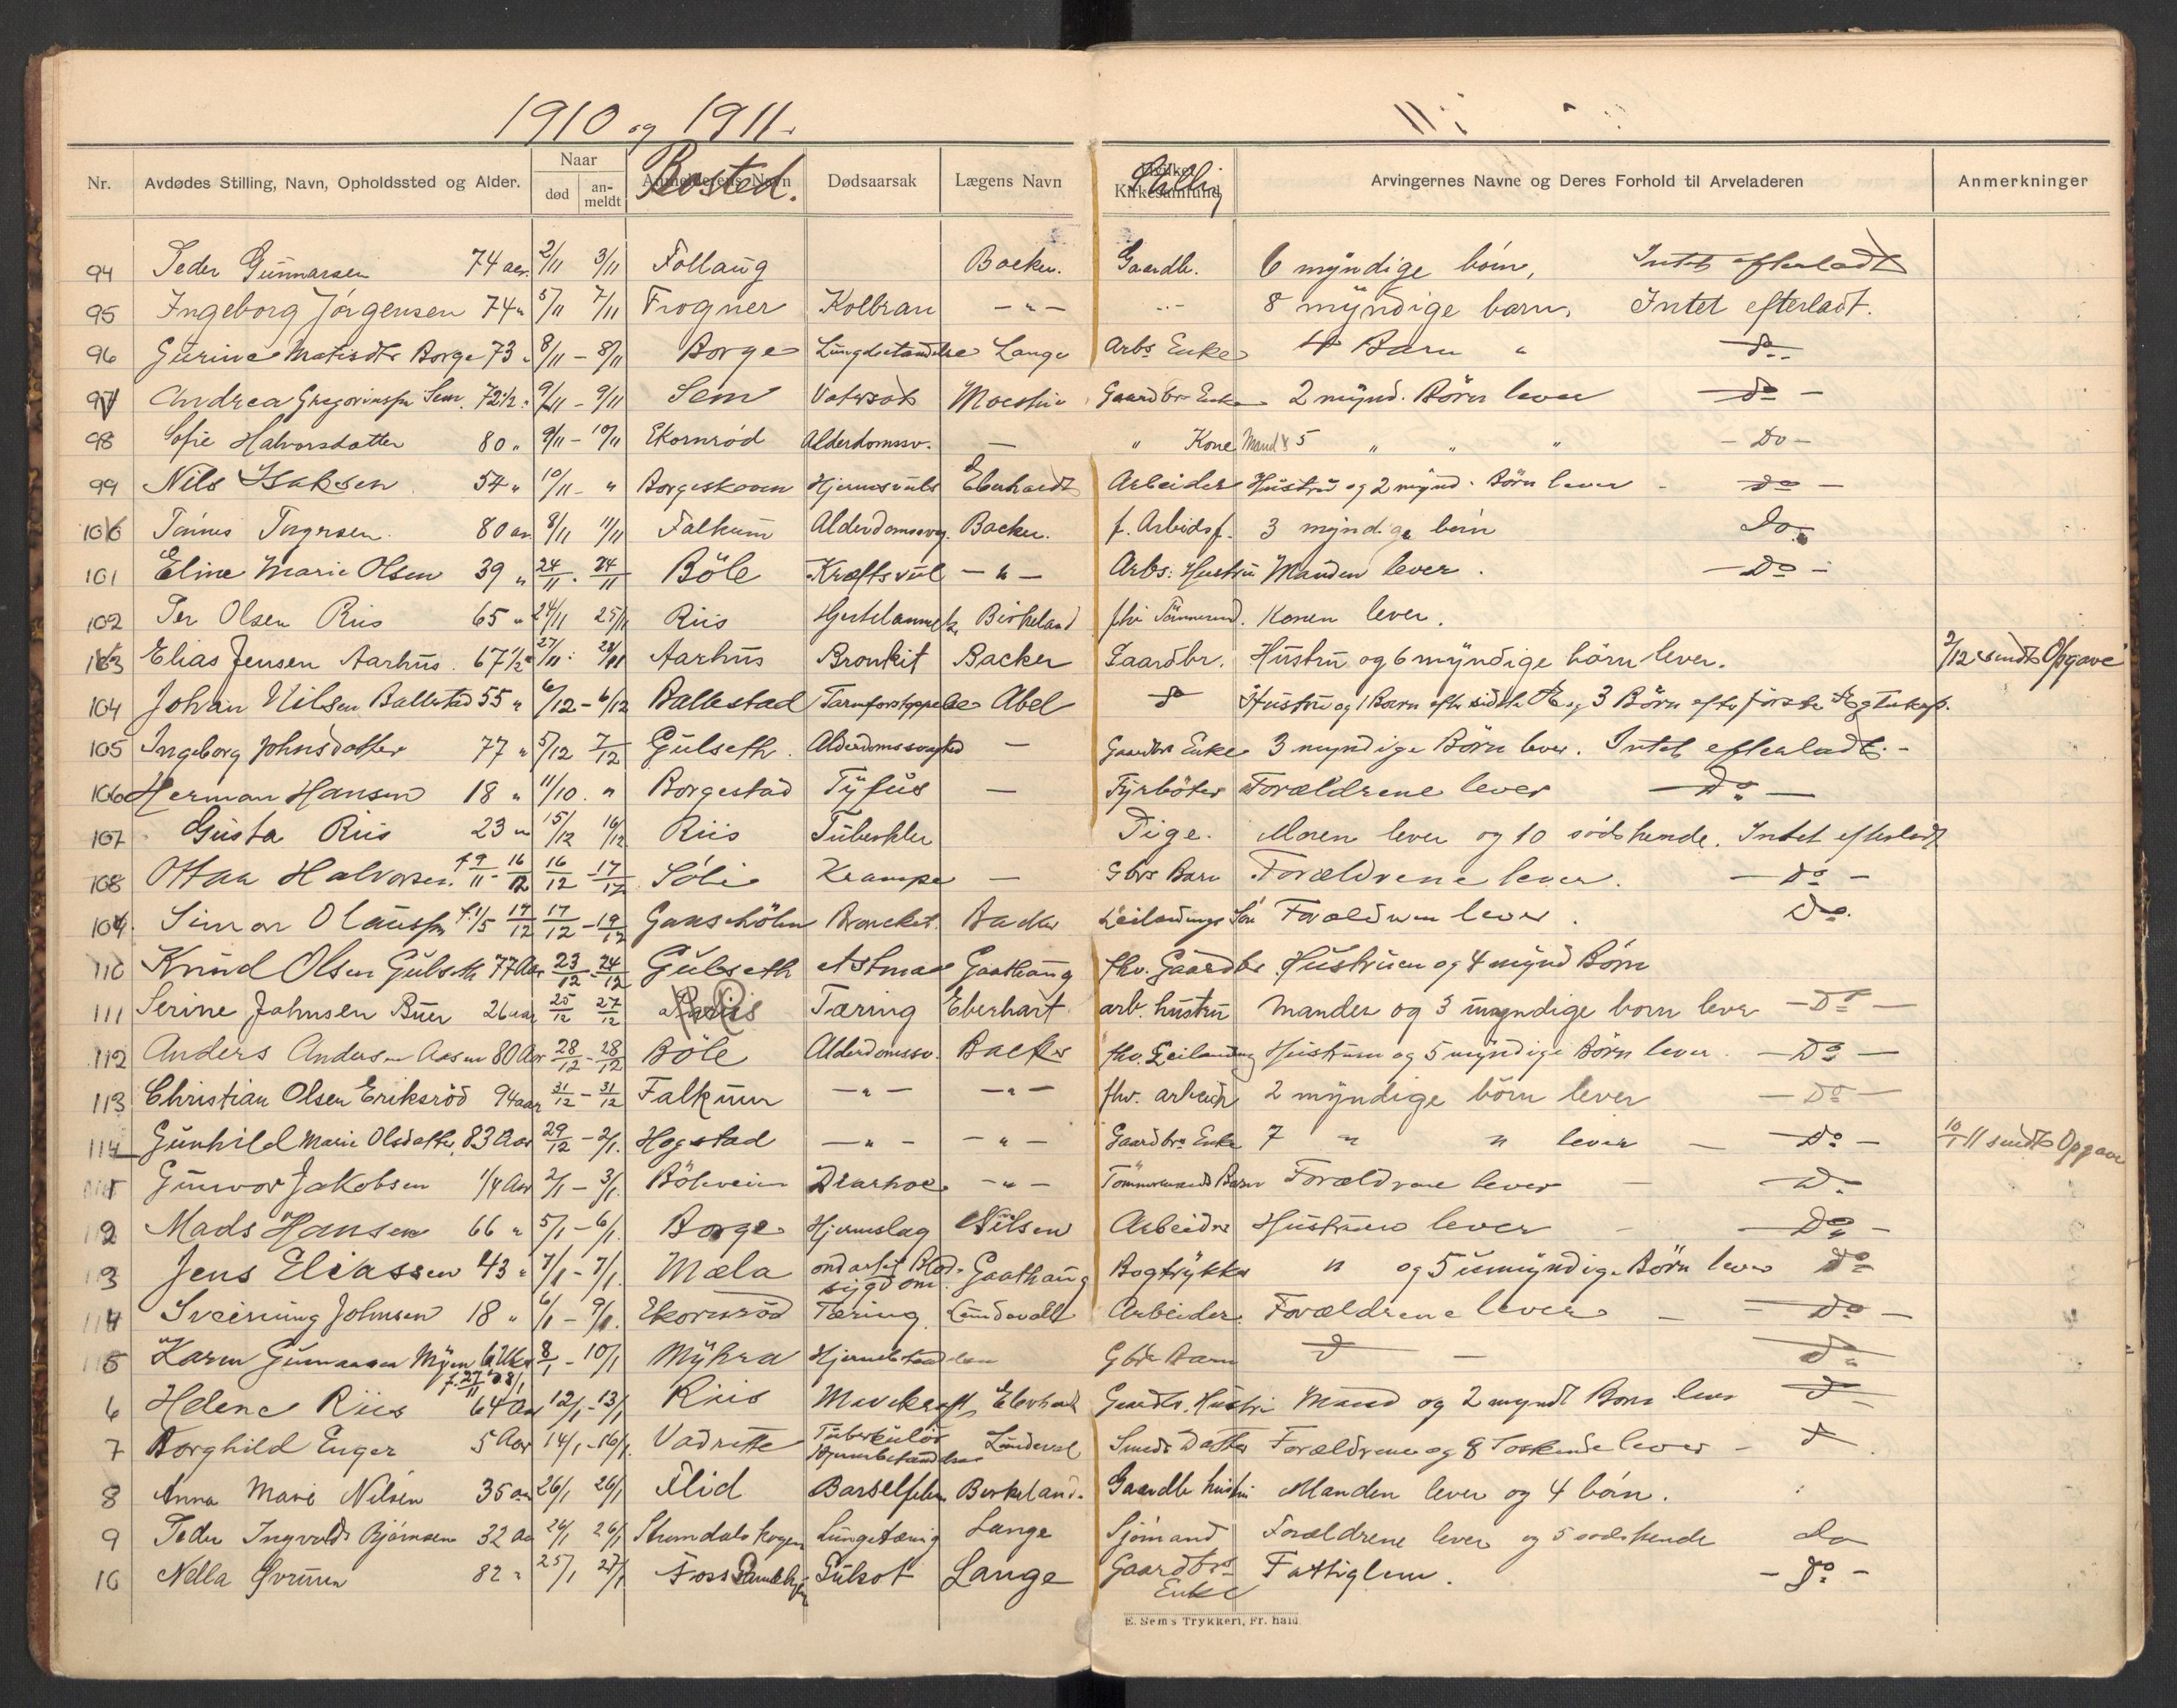 1910 og 1911.
Nr. Avdødes Stilling, Navn, Opholdssted og Alder. Naar død anmeldt Anmelderens Navn Bosted. Dødsaarsak Lægens Navn Hvilket Kirkesamfund Stilling Arvingernes Navne og Deres Forhold til Arveladeren Anmerkninger
94 Peder Gunnarsen 74 aar 2/11 3/11 Follaug Backer. Gaardb. 6 myndige börn, Intet efterladt
95 Ingeborg Jörgensen 74 " 5/11 7/11 Frogner Kolbran - " - 8 myndige barn, Intet efterladt.
96 Gurine Borge 73 " 8/11 - 8/11 Borge Lange Arbs Enke 4 Barn " Do
97 Andrea Sem 72 1/2 " 9/11 - 9/11 Sem Vatersot Moestue Gaardbr Enke 2 mynd. Börn lever do -
98 Sofie Halvorsdatter 80 " 9/11 - 10/11 Ekornröd Alderdomssv. - " Kone Mand & 5 " " " - Do -
99 Nils Isaksen 54 " 10/11 - " Borgeskoven Eberhardt Arbeider Hustru og 2 mynd. Börn lever - do -
100 80 aar 8/11 11/11 Falkum Alderdomssvag. Backer. f. Arbeidsf. 3 myndige börn Do
101 Eline Marie Olsen 39 " 24/11 - 24/11 Böle Kræftsvul - " - Arbs: Hustru Manden lever. - Do -
102 Per Olsen Riis 65 " 24/11 25/11 Riis Birkeland fhv Tömmerm. Konen lever.
103 Elias Jensen Aarhus 67 1/2 " 27/11 28/11 Aarhus Bronkit Backer Gaardbr. Hustru og 6 myndige börn lever. 2/12 sendt Opgave
104 Johan Nilsen Ballestad 55 " 6/12 - 6/12 Ballestad Tarmforstoppelse Abel do Hustru og 1 Barn efter sidste Æ og 3 Börn efter förste Ægteskap.
105 Ingeborg Johnsdatter 77 " 5/12 7/12 Gulseth Alderdomssvaghed - Gaardbrs Enke 3 myndige Börn lever. Intet efterladt. -
106 Herman Hansen 18 " 11/10. " Borgestad Tyfus - Fyrböter Forældrene lever Do -
107 Gusta Riis 23 " 15/12 16/12 Riis Tuberkler Pige. Moren lever og 10 södskende. Intet efterladt
108 Halvorsen. f. 9/11 - 16/12 16/12 - 17/12 Sölie Krampe - Gbrs Barn Forældrene lever. - Do -
109 Simon Olausen f. 1/5 17/12 17/12 - 19/12 Broncket. Backer Leilændings Sön Forældrene lever. Do.
110 Knud Olsen Gulseth 77 Aar 23/12 - 24/12 Gulseth Astma Gaathaug fhv. Gaardbr Hustruen og 4 mynd Börn
111 Serine Johnsen Buer 26 aar 25/12 27/12 Tæring Eberhart. arb. hustru Manden og 3 umyndige born lever - Do -
112 Anders Andersen Aasen 80 Aar 28/12 - 28/12 Böle Alderdomssv. Backer fhv. Leilænding Hustruen og 5 myndige Börn lever. - Do -
113 Christian Olsen Eriksröd 94 aar 31/12 - 31/12 Falkum - " - - " - fhv. arbeider 2 myndige börn lever - Do -
114 Gunhild Marie Olsdatter, 83 Aar 29/12 - 2/1. Hogstad - " - - " - Gaardbrs Enke 7 " " lever - Do - 10/1 11 sendt Opgave
1 Gunvor Jakobsen 1/4 Aar 2/1 - 3/1. Böleveien Diarhoe - " - Tömmermands Barn Forældrene lever - Do
2 Mads Hansen 66 " 5/1 - 6/1. Borge Hjerneslag Nilsen Arbeider Hustruen lever - Do -
3 Jens Eliassen 43 " 7/1 - 7/1. Mæla ondartet Blodsygdom. Gaathaug Bogtrykker " og 5 umyndige Börn lever Do
4 Sveinung Johnsen 18 " 6/1 - 9/1. Ekornröd Tæring Lindevall Arbeider. Forældrene lever - Do -
5 Karen Gunnarsen Myren 6 Uker f. 27/11 8/1 8/1 - 10/1 Myhra Gbr Barn Do - Do
6 Helene Riis 64 Aar 12/1 - 13/1 Riis Mavekræft Eberhardt Gaardbr. Hustru Mand og 2 myndl Born lever Do
7 Borghild Enger 5 Aar 14/1 - 16/1. Vadrette Tuberkulös Hjernebetændelse Lindevall Smeds Datter Forældrene og 8 Soskende lever - Do.
8 Anna Marie Nilsen 35 aar 26/1 26/1 Flid Barselfeber Birkeland. Gaardb hustru Manden lever og 4 börn.
9 Peder Ingvald Bjørnsen 32 Aar 26/1 26/1 Lungetæring Lange Sjömand Forældrene lever og 5 södskende do
10 Nella 82 " 25/1 27/1 Foss Lange Gaardbrs Enke Fattiglem. - Do -
E. Sem's Trykkeri, Fr. hald